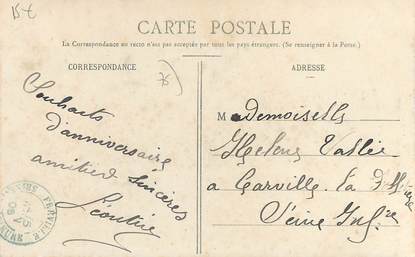 15 €
CARTE POSTALE
La Correspondance au recto n'est pas acceptée par tous les pays étrangers. (Se renseigner à la Poste.)
CORRESPONDANCE
ADRESSE
76
Souhaits
d'anniversaire
amitiés sincères
Léontine
Mademoiselle
Helene Vallée
a Carville la
Seine Infre